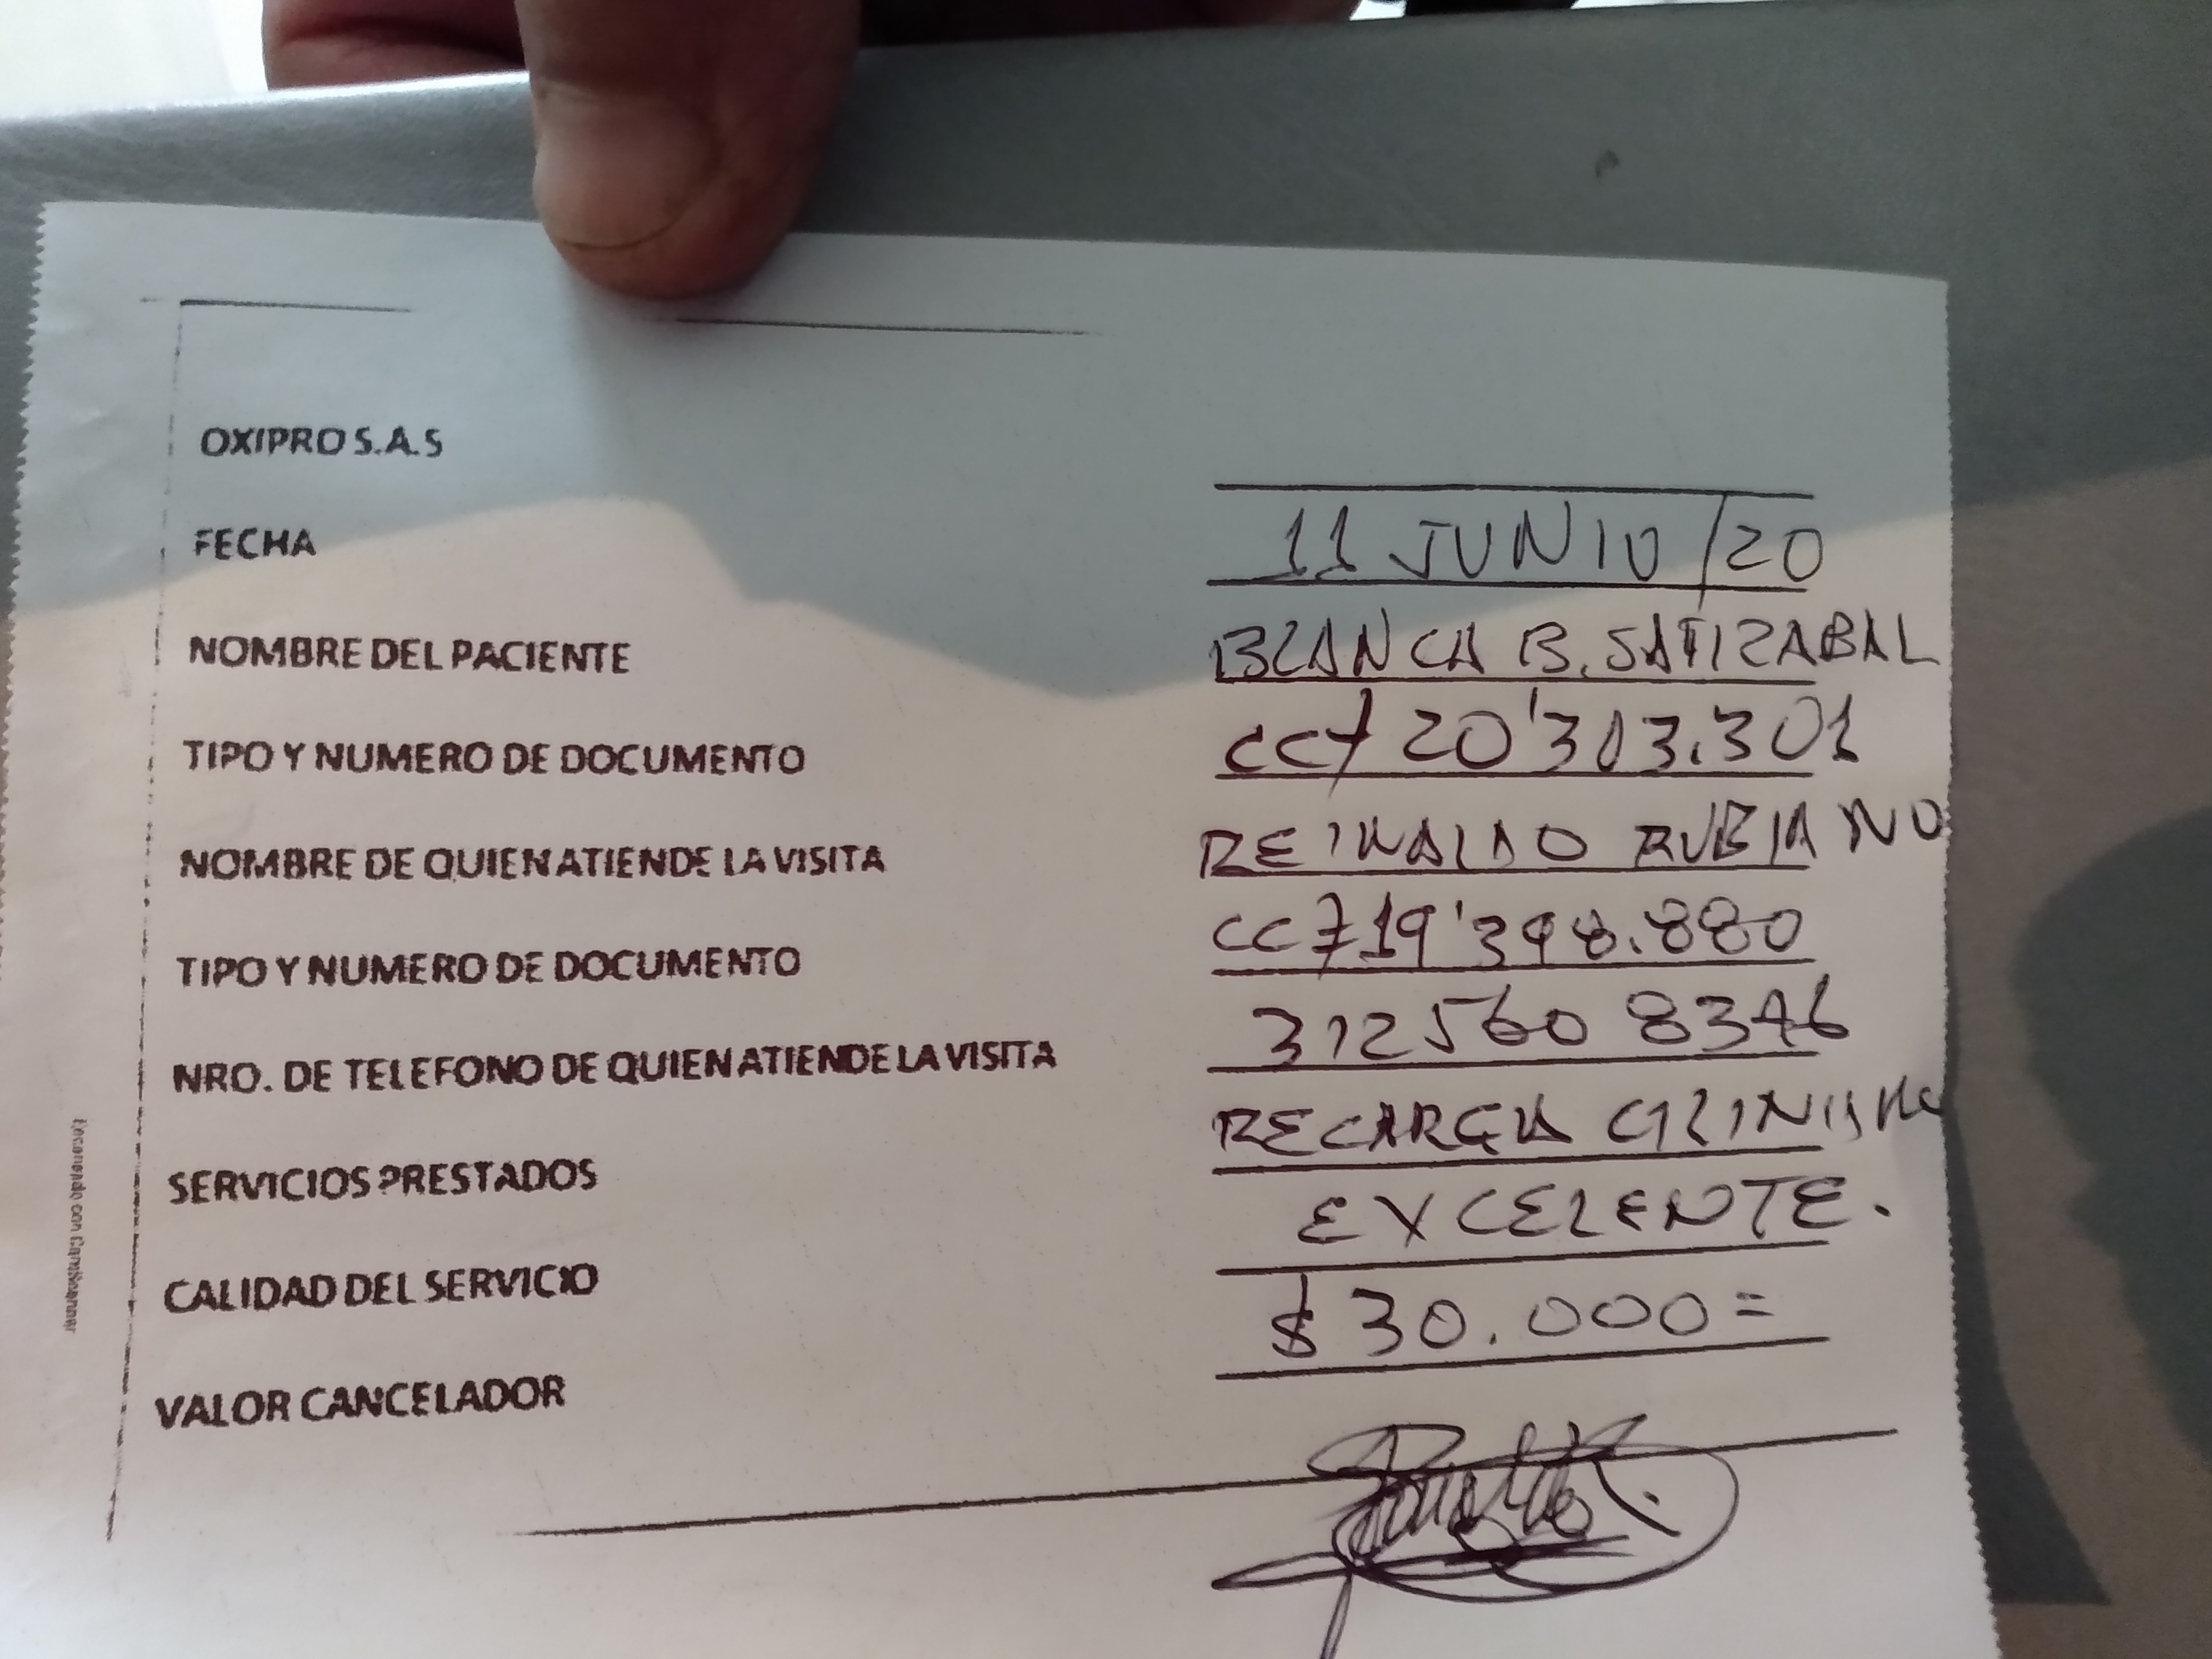 OXIPRO S.A.S
FECHA 11 JUNIO/20
NOMBRE DEL PACIENTE BLANCA B. SATIZABAL
TIPO Y NUMERO DE DOCUMENTO CC/ 20'303.301
NOMBRE DE QUIEN ATIENDE LA VISITA REINALDO RUBIANO
TIPO Y NUMERO DE DOCUMENTO CC/19'398.880
NRO. DE TELEFONO DE QUIEN ATIENDE LA VISITA 312560 8346
SERVICIOS PRESTADOS RECARGA
CALIDAD DEL SERVICIO EXCELENTE.
VALOR CANCELADOR $ 30.000=
Escaneado con CamScanner